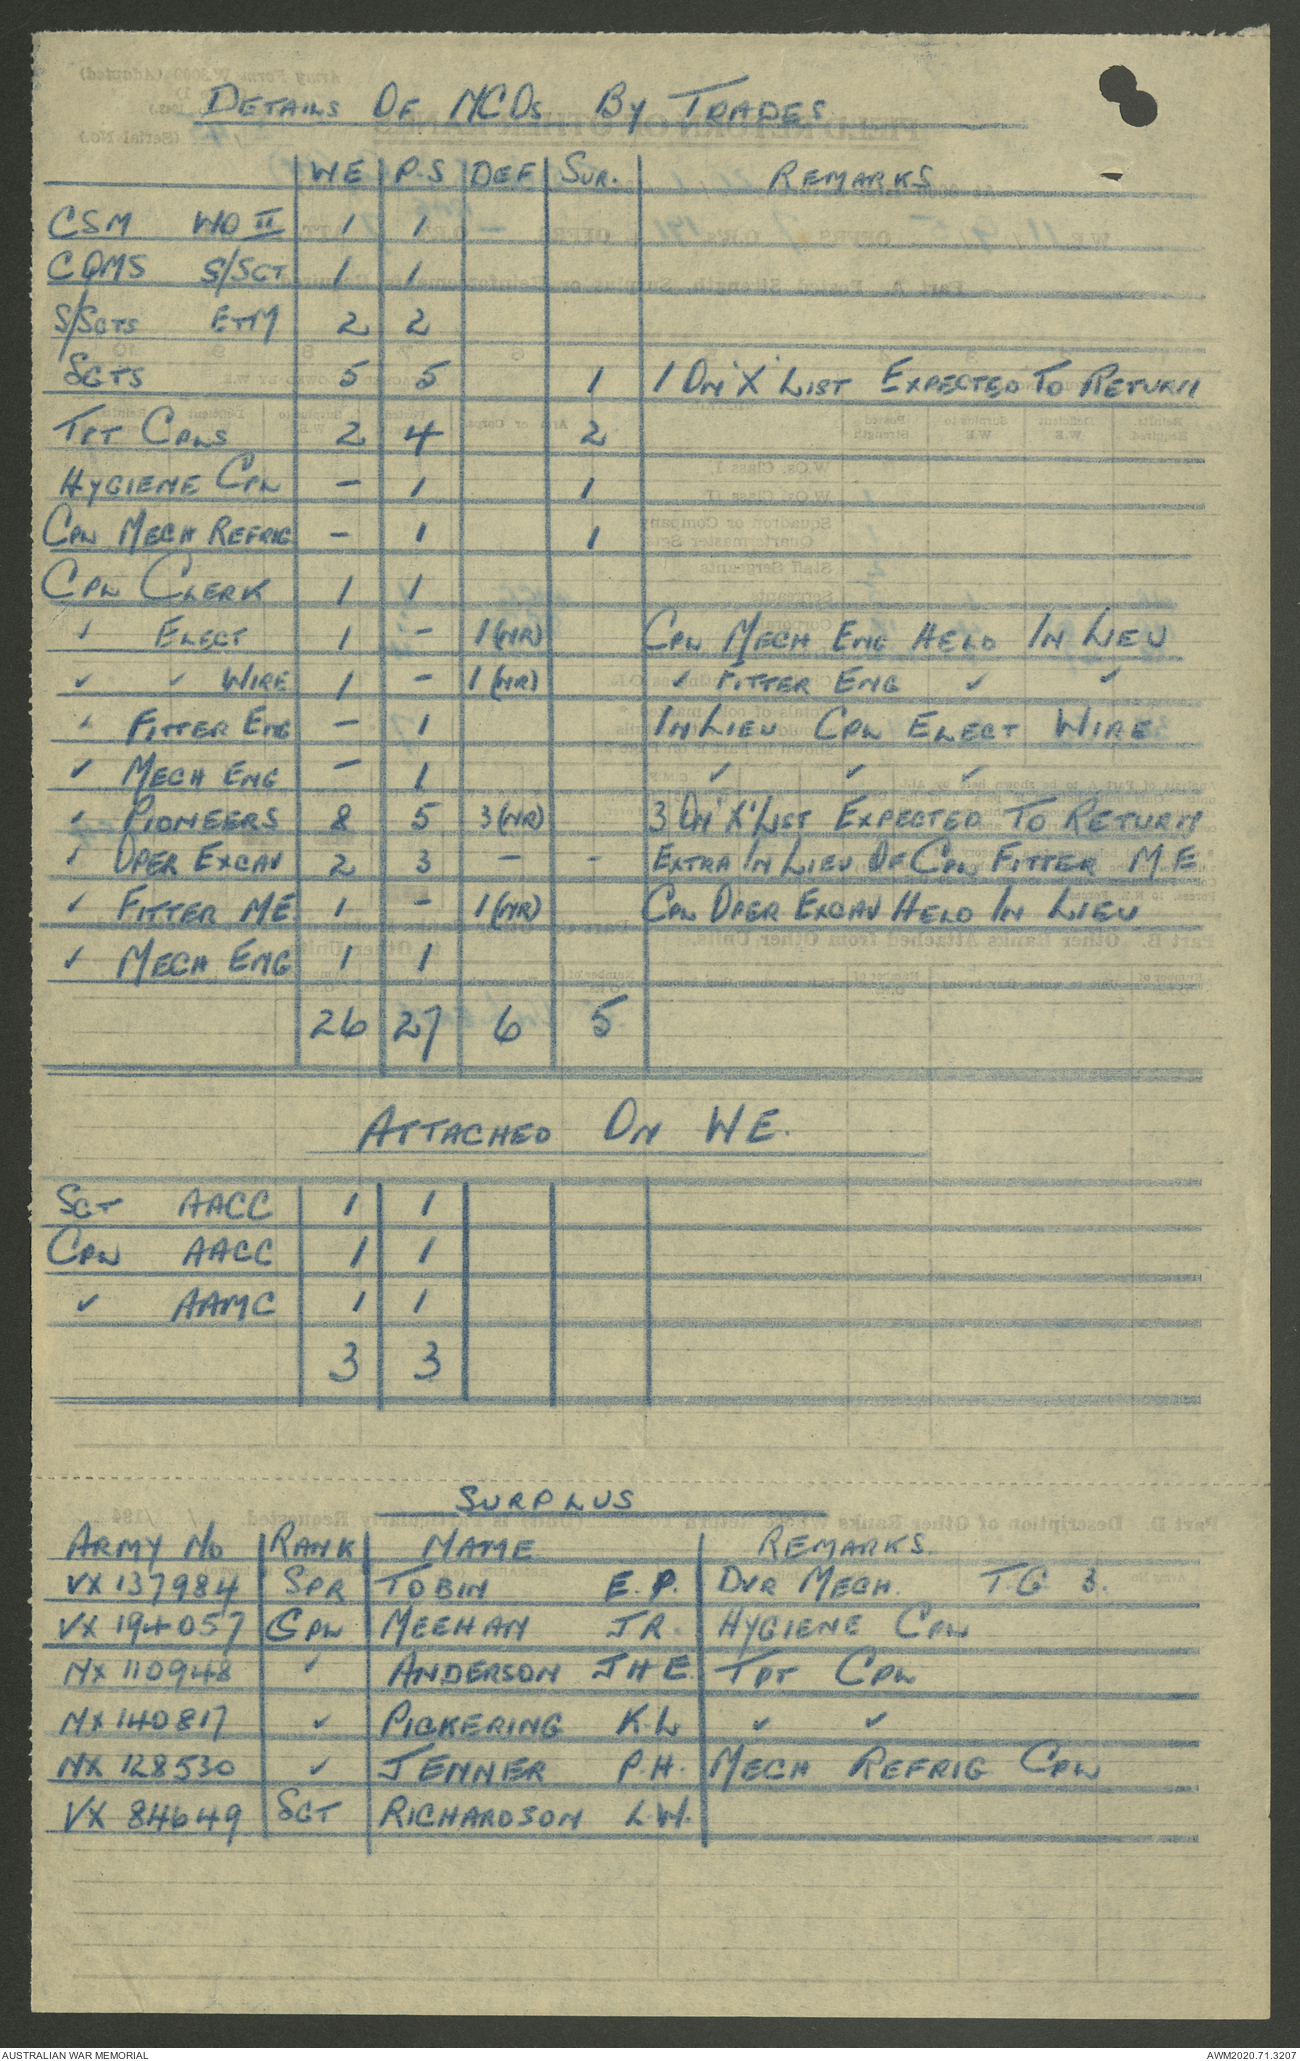 DETAILS OF NCOs BY TRADES
WE P.S DEF SUR. REMARKS
CSM WO II 1 1
CQMS S/SGT 1 1
S/SGTS E+M 2 2
SGTS 5 5 1 1 ON 'X' LIST EXPECTED TO RETURN
TPT CPLS 2 4 2
HYGIENE CPL - 1 1
CPL MECH REFRIG - 1 1
CPL CLERK 1 1
✓ ELECT 1 - 1 (NR) CPL MECH ENG HELD IN LIEU
✓ ✓ WIRE 1 - 1 (NR) ✓ FITTER ENG ✓ ✓
✓ FITTER ENG - 1 IN LIEU CPL ELECT WIRE
✓ MECH ENG - 1 ✓ ✓ ✓
✓ PIONEERS 8 5 3 (NR) 3 ON 'X' LIST EXPECTED TO RETURN
✓ OPER EXCAV 2 3 - - EXTRA IN LIEU OF CPL FITTER M.E.
✓ FITTER ME. 1 - 1 (NR) CPL OPER EXCAV HELD IN LIEU
✓ MECH ENG 1 1
26 27 6 5
ATTACHED ON WE.
SGT AACC 1 1
CPL AACC 1 1
✓ AAMC 1 1
3 3
SURPLUS
ARMY NO RANK NAME REMARKS.
VX 137984 SPR TOBIN E.P. DVR MECH. T.G 3.
VX 194057 CPL MEEHAN J.R. HYGIENE CPL
NX 110948 ✓ ANDERSON J H E. TPT CPL
NX 140817 ✓ PICKERING K.L ✓ ✓
NX 128530 ✓ JENNER P.H. MECH REFRIG CPL
VX 84649 SGT RICHARDSON L.W.
AUSTRALIAN WAR MEMORIAL AWM2020.71.3207